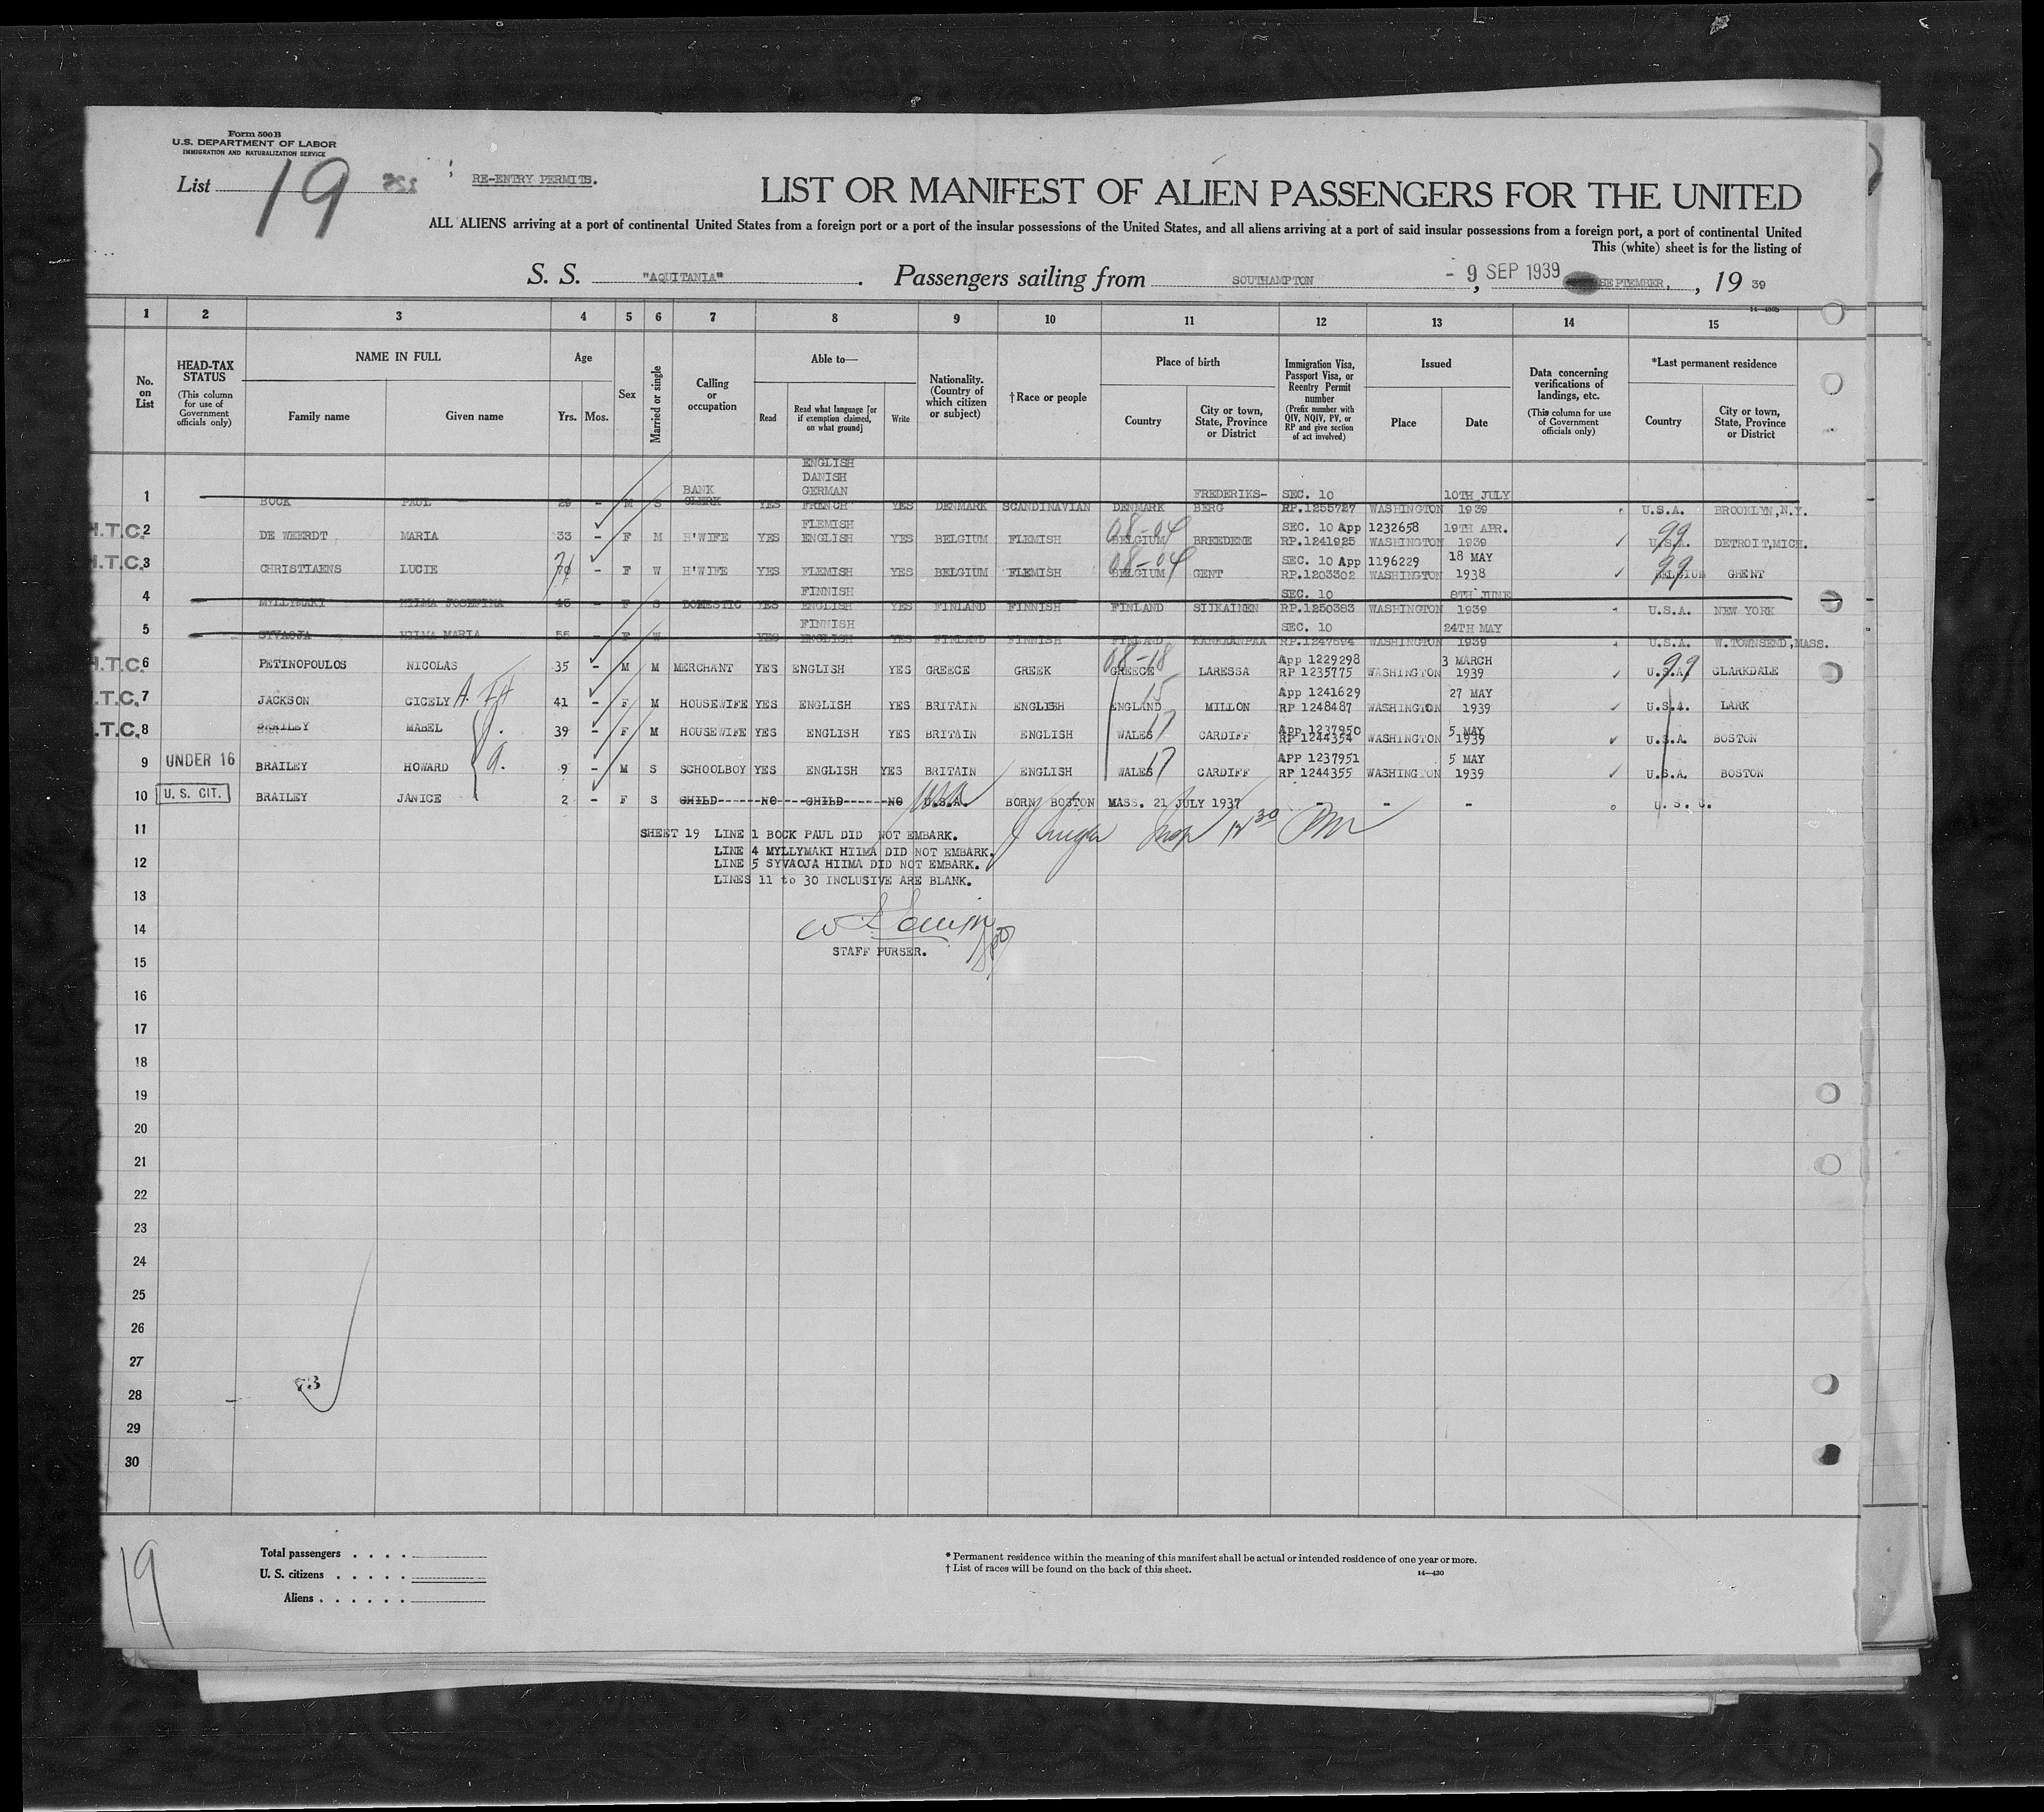 Form 500 B
U.S. DEPARTMENT OF LABOR
IMMIGRATION AND NATURALIZATION SERVICE
List 19
RE-ENTRY PERMITS.
LIST OR MANIFEST OF ALIEN PASSENGERS FOR THE UNITED
ALL ALIENS arriving at a port of continental United States from a foreign port or a port of the insular possessions of the United States, and all aliens arriving at a port of said insular possessions from a foreign port, a port of continental United
This (white) sheet is for the listing of
S. S. "AQUITANIA". Passengers sailing from SOUTHAMPTON, - 9 SEP 1939 SEPTEMBER, , 19 39
1 2 3 4 5 6 7 8 9 10 11 12 13 14 15
No. on List
HEAD-TAX STATUS (This column for use of Government officials only)
NAME IN FULL
Family name Given name
Age
Yrs. Mos.
Sex
Married or single
Calling or occupation
Able to—
Read Read what language [or if exemption claimed, on what ground] Write
Nationality. (Country of which citizen or subject)
†Race or people
Place of birth
Country City or town, State, Province or District
Immigration Visa, Passport Visa, or Reentry Permit number (Prefix number with QIV, NQIV, PV, or RP and give section of act involved)
Issued
Place Date
Data concerning verifications of landings, etc. (This column for use of Government officials only)
*Last permanent residence
Country City or town, State, Province or District
1 BOCK PAUL 29 - M S BANK CLERK YES ENGLISH DANISH GERMAN FRENCH YES DENMARK SCANDINAVIAN DENMARK FREDERIKS- BERG SEC. 10 RP.1255727 WASHINGTON 10TH JULY 1939 U.S.A. BROOKLYN,N.Y.
H.T.C. 2 DE WEERDT MARIA 33 - F M H'WIFE YES FLEMISH ENGLISH YES BELGIUM FLEMISH 08-04 BELGIUM BREEDENE SEC. 10 App 1232658 RP.1241925 WASHINGTON 19TH APR. 1939 99 U.S.A. DETROIT,MICH.
H.T.C. 3 CHRISTIAENS LUCIE - F W H'WIFE YES FLEMISH YES BELGIUM FLEMISH 08-04 BELGIUM GENT SEC. 10 App 1196229 RP.1203302 WASHINGTON 18 MAY 1938 99 BELGIUM GHENT
4 MYLLYMAKI HIIMA JOSEFINA 45 - F S DOMESTIC YES FINNISH ENGLISH YES FINLAND FINNISH FINLAND SIIKAINEN SEC. 10 RP.1250383 WASHINGTON 8TH JUNE 1939 U.S.A. NEW YORK
5 SYVAOJA HIIMA MARIA 55 - F W YES FINNISH ENGLISH YES FINLAND FINNISH FINLAND KANKAANPAA SEC. 10 RP.1247594 WASHINGTON 24TH MAY 1939 U.S.A. W.TOWNSEND,MASS.
H.T.C. 6 PETINOPOULOS NICOLAS 35 - M M MERCHANT YES ENGLISH YES GREECE GREEK 08-18 GREECE LARESSA App 1229298 RP 1235775 WASHINGTON 3 MARCH 1939 U.S.A. 99 CLARKDALE
H.T.C. 7 JACKSON CICELY A. 41 - F M HOUSEWIFE YES ENGLISH YES BRITAIN ENGLISH 15 ENGLAND MILLON App 1241629 RP 1248487 WASHINGTON 27 MAY 1939 U.S.A. LARK
H.T.C. 8 BRAILEY MABEL 39 - F M HOUSEWIFE YES ENGLISH YES BRITAIN ENGLISH WALES 17 CARDIFF App 1237950 RP 1244354 WASHINGTON 5 MAY 1939 U.S.A. BOSTON
9 UNDER 16 BRAILEY HOWARD 9 - M S SCHOOLBOY YES ENGLISH YES BRITAIN ENGLISH WALES 17 CARDIFF APP 1237951 RP 1244355 WASHINGTON 5 MAY 1939 U.S.A. BOSTON
10 U. S. CIT. BRAILEY JANICE 2 - F S CHILD------NO----CHILD------NO U.S.A. BORN BOSTON MASS. 21 JULY 1937 - - - U. S. C.
11
SHEET 19 LINE 1 BOCK PAUL DID NOT EMBARK.
LINE 4 MYLLYMAKI HIIMA DID NOT EMBARK.
12
LINE 5 SYVAOJA HIIMA DID NOT EMBARK.
LINES 11 to 30 INCLUSIVE ARE BLANK.
13
14
STAFF PURSER.
15
16
17
18
19
20
21
22
23
24
25
26
27
73
28
29
30
19
Total passengers . . . .
U. S. citizens . . . . .
Aliens . . . . . .
* Permanent residence within the meaning of this manifest shall be actual or intended residence of one year or more.
† List of races will be found on the back of this sheet.
14—430